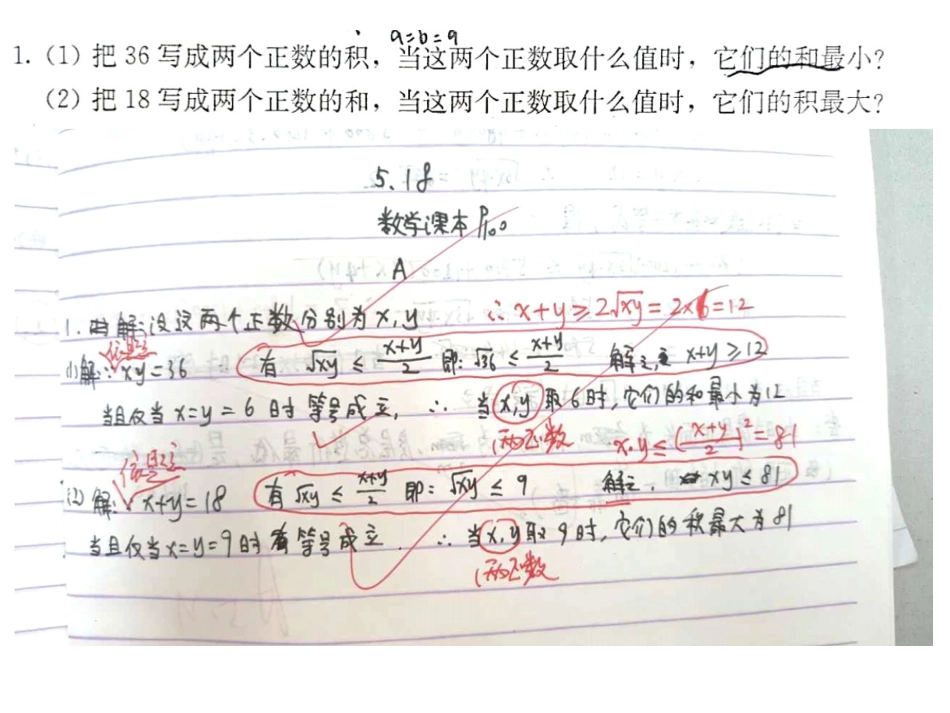 a=b=9
1. (1) 把 36 写成两个正数的积，当这两个正数取什么值时，它们的和最小?
(2) 把 18 写成两个正数的和，当这两个正数取什么值时，它们的积最大?
5.18
数学课本 P100
A
1. 解:设这两个正数分别为x,y ∴ x+y≥2√xy=2×6=12
(1)解: ∵ xy=36 有 √xy ≤ (x+y)/2 即: √36 ≤ (x+y)/2 解之 x+y≥12
当且仅当 x=y=6 时 等号成立, ∴ 当 x,y 取 6 时, 它们的和最小为12
两正数 x·y≤((x+y)/2)²=81
(2) 解: x+y=18 有 √xy ≤ (x+y)/2 即: √xy ≤ 9 解之. xy≤81
当且仅当 x=y=9 时 等号成立. ∴ 当 x,y 取 9 时, 它们的积最大为81
两正数